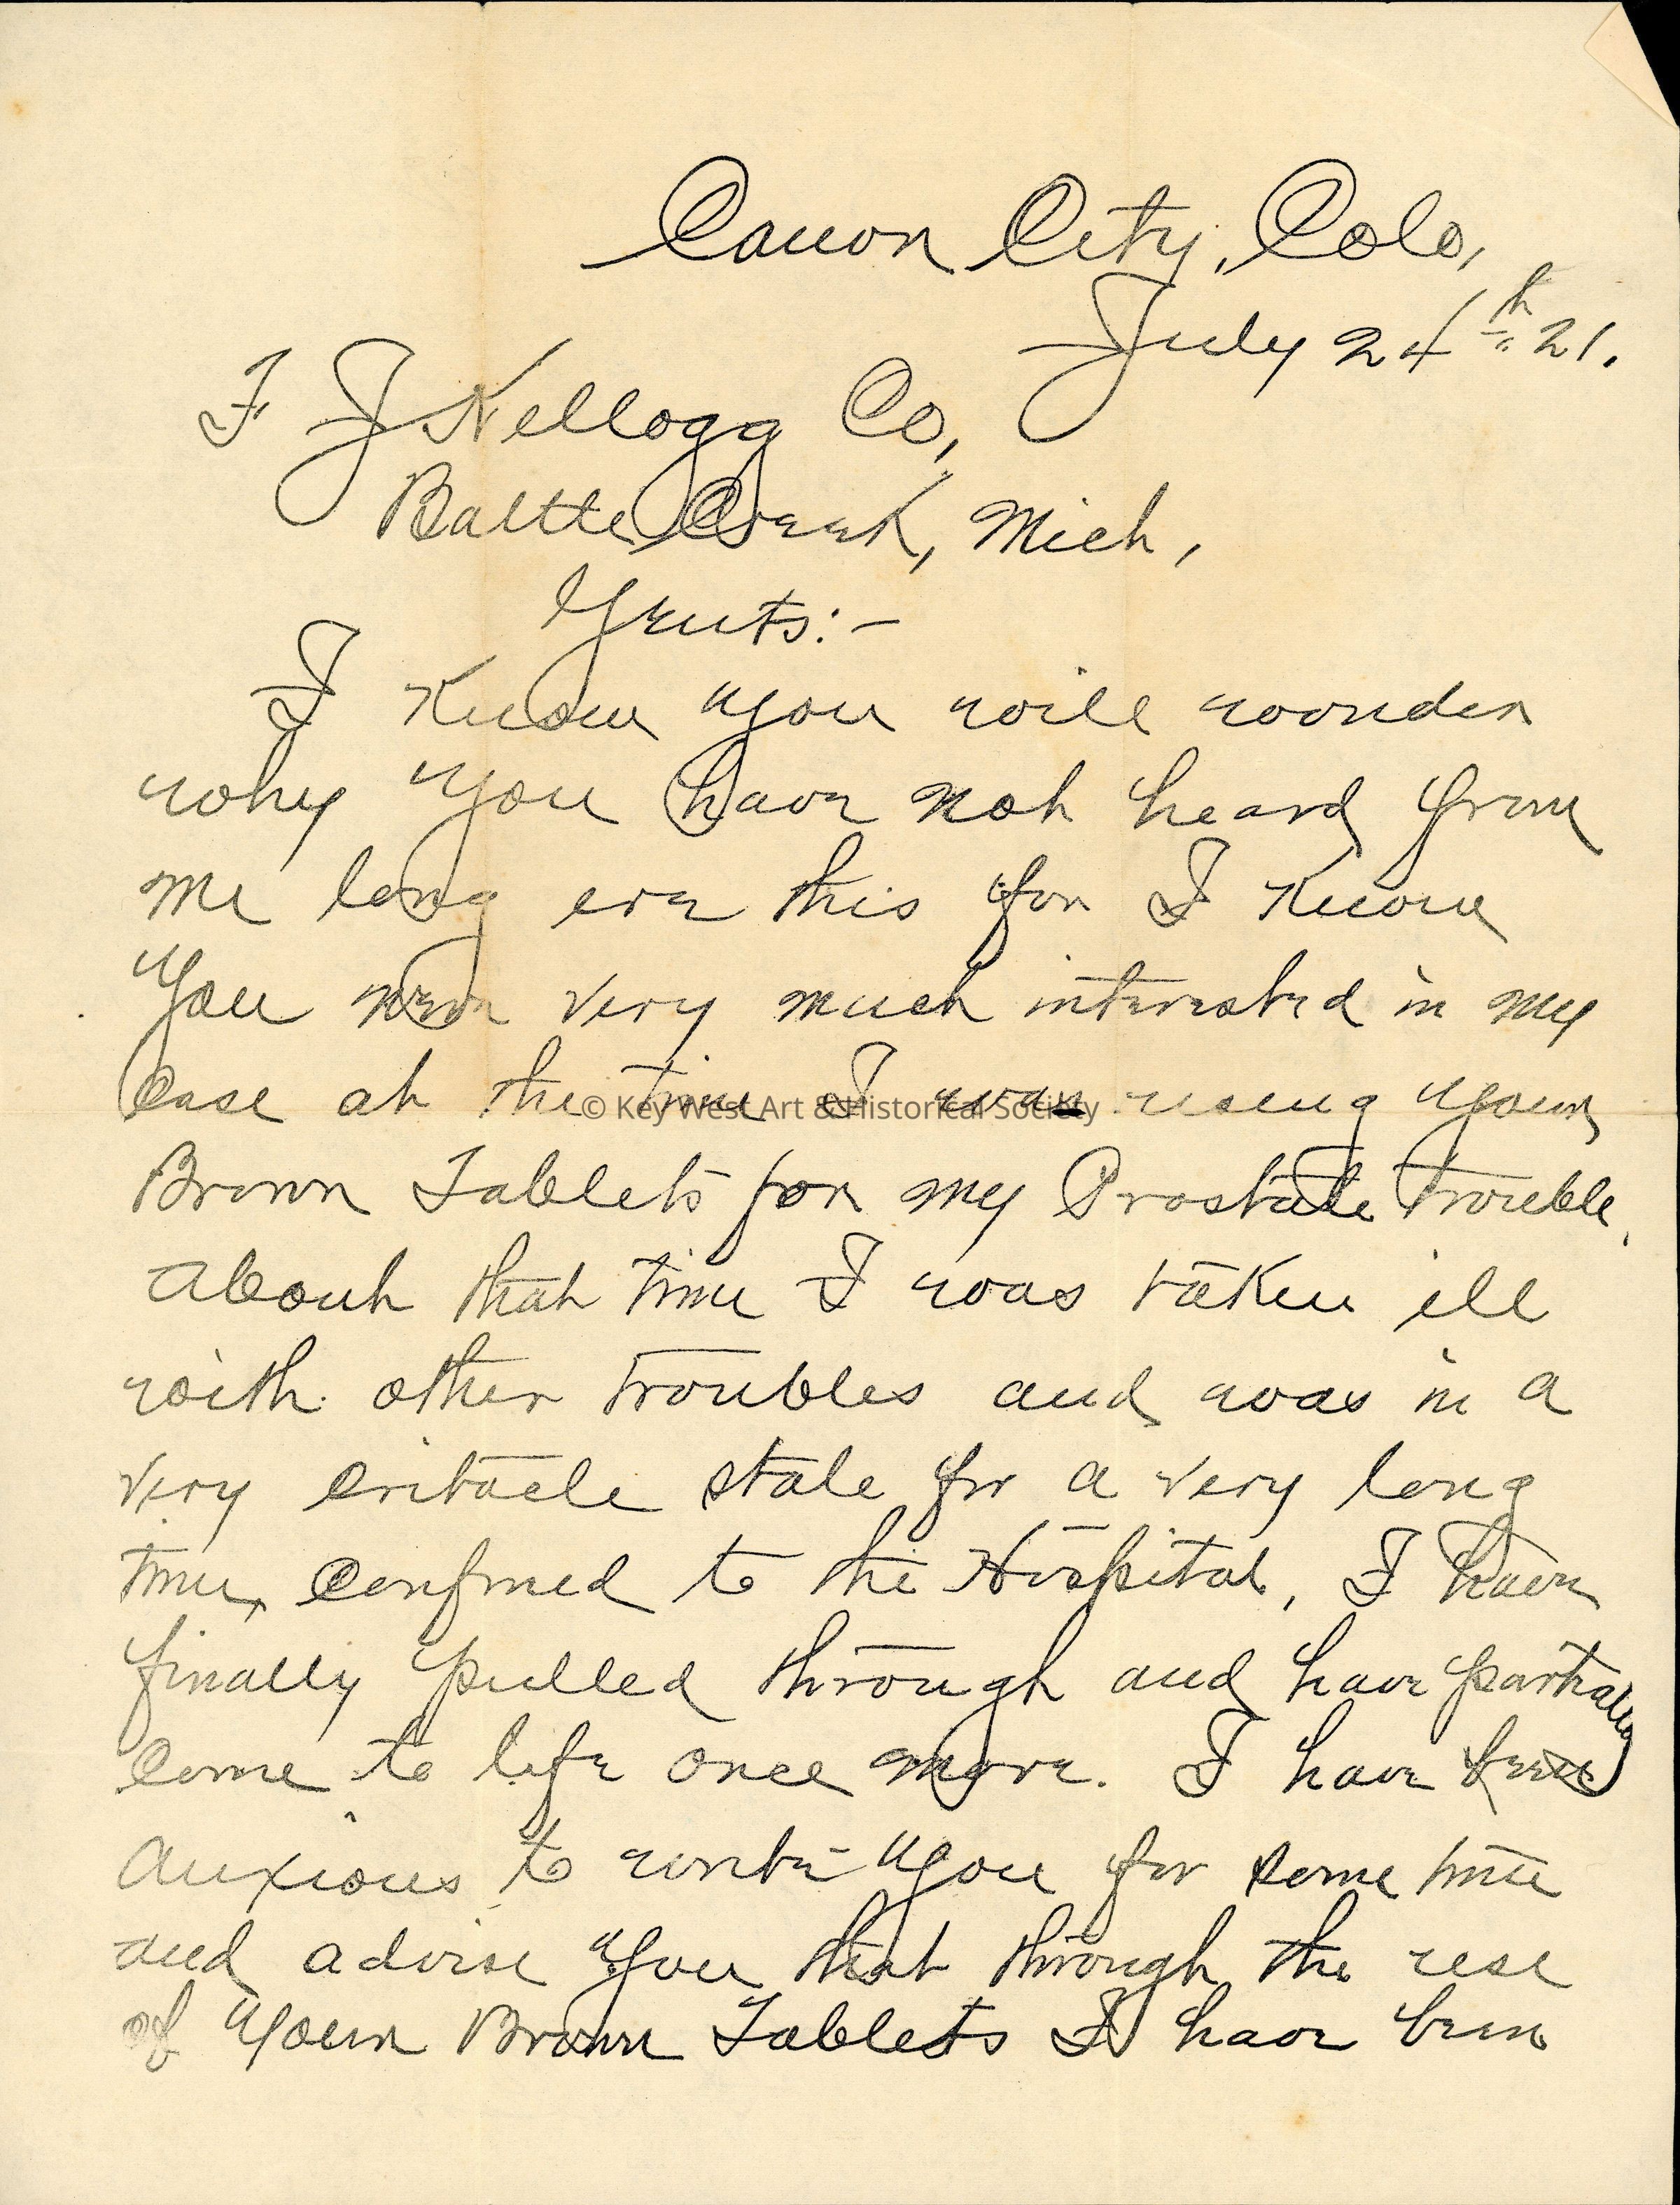 Canon City, Colo,
July 24th 21.
F J Kellogg Co,
Battle Creek, Mich,
Gents:-
I Know you will wonder
why you have not heard from
me long ere this for I Know
you were very much interested in my
Case at the time I was using your
© Key West Art & Historical Society
Brown Tablets for my Prostate trouble.
About that time I was taken ill
with other troubles and was in a
very criticle state for a very long
time, Confined to the Hospital, I have
finally pulled through and have partially
Come to life once more. I have been
anxious to write you for some time
and advise you that through the use
of your Brown Tablets I have been